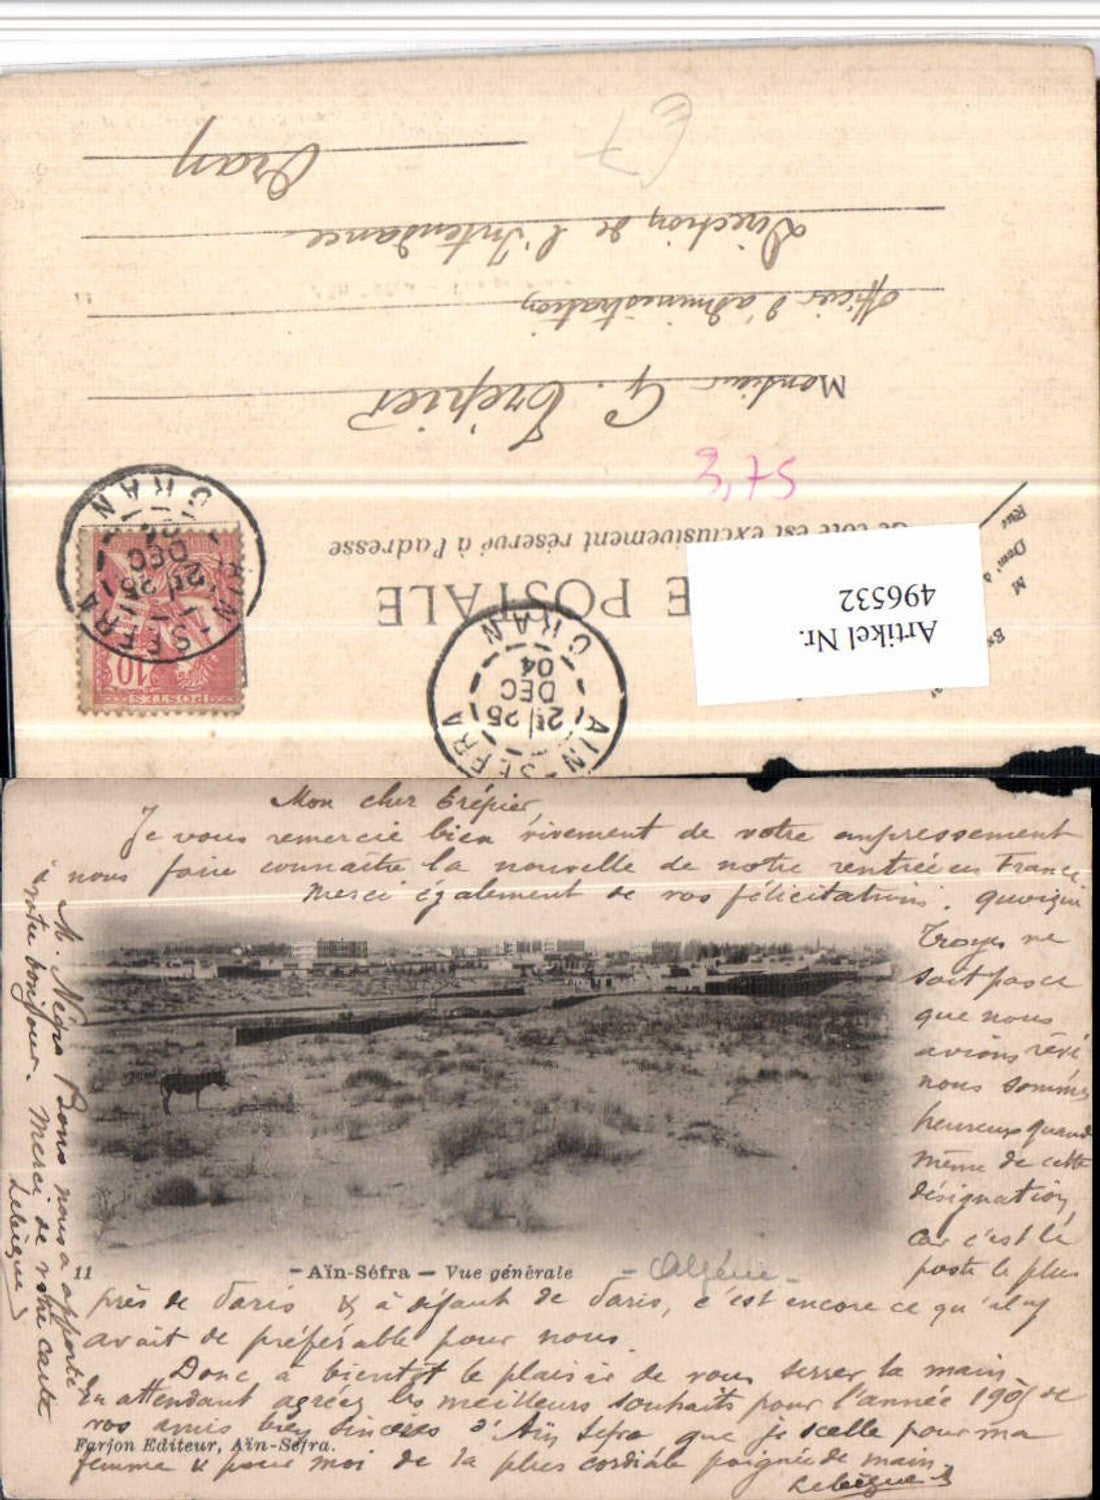 Oran
Direction de l'Intendance
Officier d'administration
Monsieur G. Trépier
5 7,5
Ce côté est exclusivement réservé à l'adresse
E POSTALE
Artikel Nr.
496532
AIN-SEFRA ORAN
25
DEC
POSTES
10
AIN-SEFRA ORAN
2E/25
DEC
04
Mon cher Trépier,
Je vous remercie bien vivement de votre empressement
à nous faire connaître la nouvelle de notre rentrée en France
Merci également de vos félicitations. quoique
Troyes ne
soit pas ce
que nous
avions rêvé
nous sommes
heureux quand
même de cette
désignation,
car c'est le
poste le plus
11 - Aïn-Séfra - Vue générale - Algérie -
près de Paris & à défaut de Paris, c'est encore ce qu'il y
avait de préférable pour nous.
Donc, à bientôt le plaisir de vous serrer la main
En attendant agréez les meilleurs souhaits pour l'année 1905 de
vos amis bien sincères d'Aïn Sefra que je scelle pour ma
Farjon Editeur, Aïn-Séfra.
femme & pour moi de la plus cordiale poignée de main.
Lebègue
M. Nègre Bons nous a apporté
votre bonjour. Merci de votre carte
Lebègue